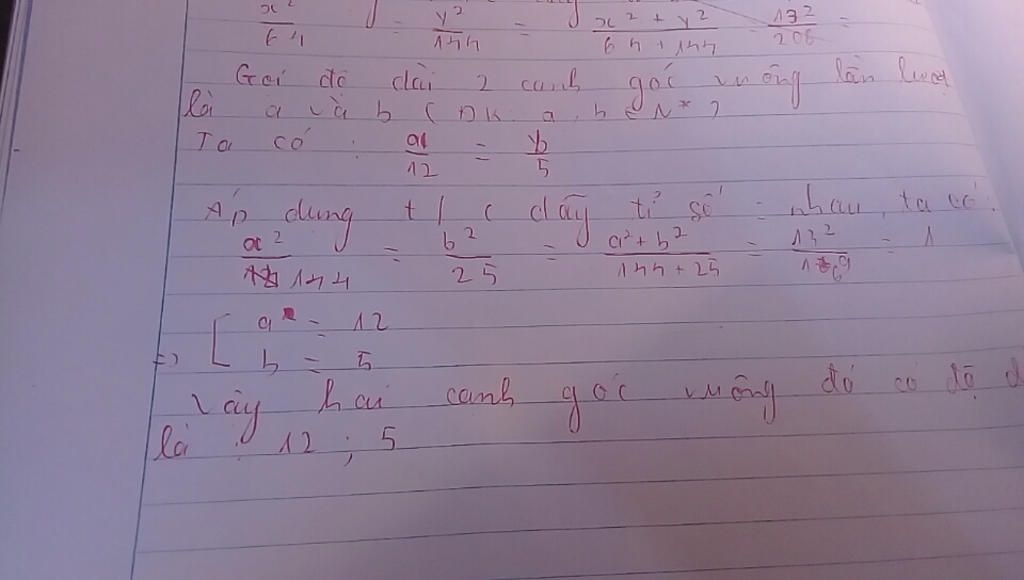 x²/64 = y²/144 = x² + y²/64 + 144 = 13²/208 =
Gọi độ dài 2 cạnh góc vuông lần lượt
là a và b ( ĐK a, b ∈ N* )
Ta có : a/12 = b/5
Áp dụng t/c dãy tỉ số = nhau, ta có :
a²/144 = b²/25 = a² + b²/144 + 25 = 13²/169 = 1
=> [ a = 12
b = 5
Vậy hai cạnh góc vuông đó có độ d
là : 12 ; 5